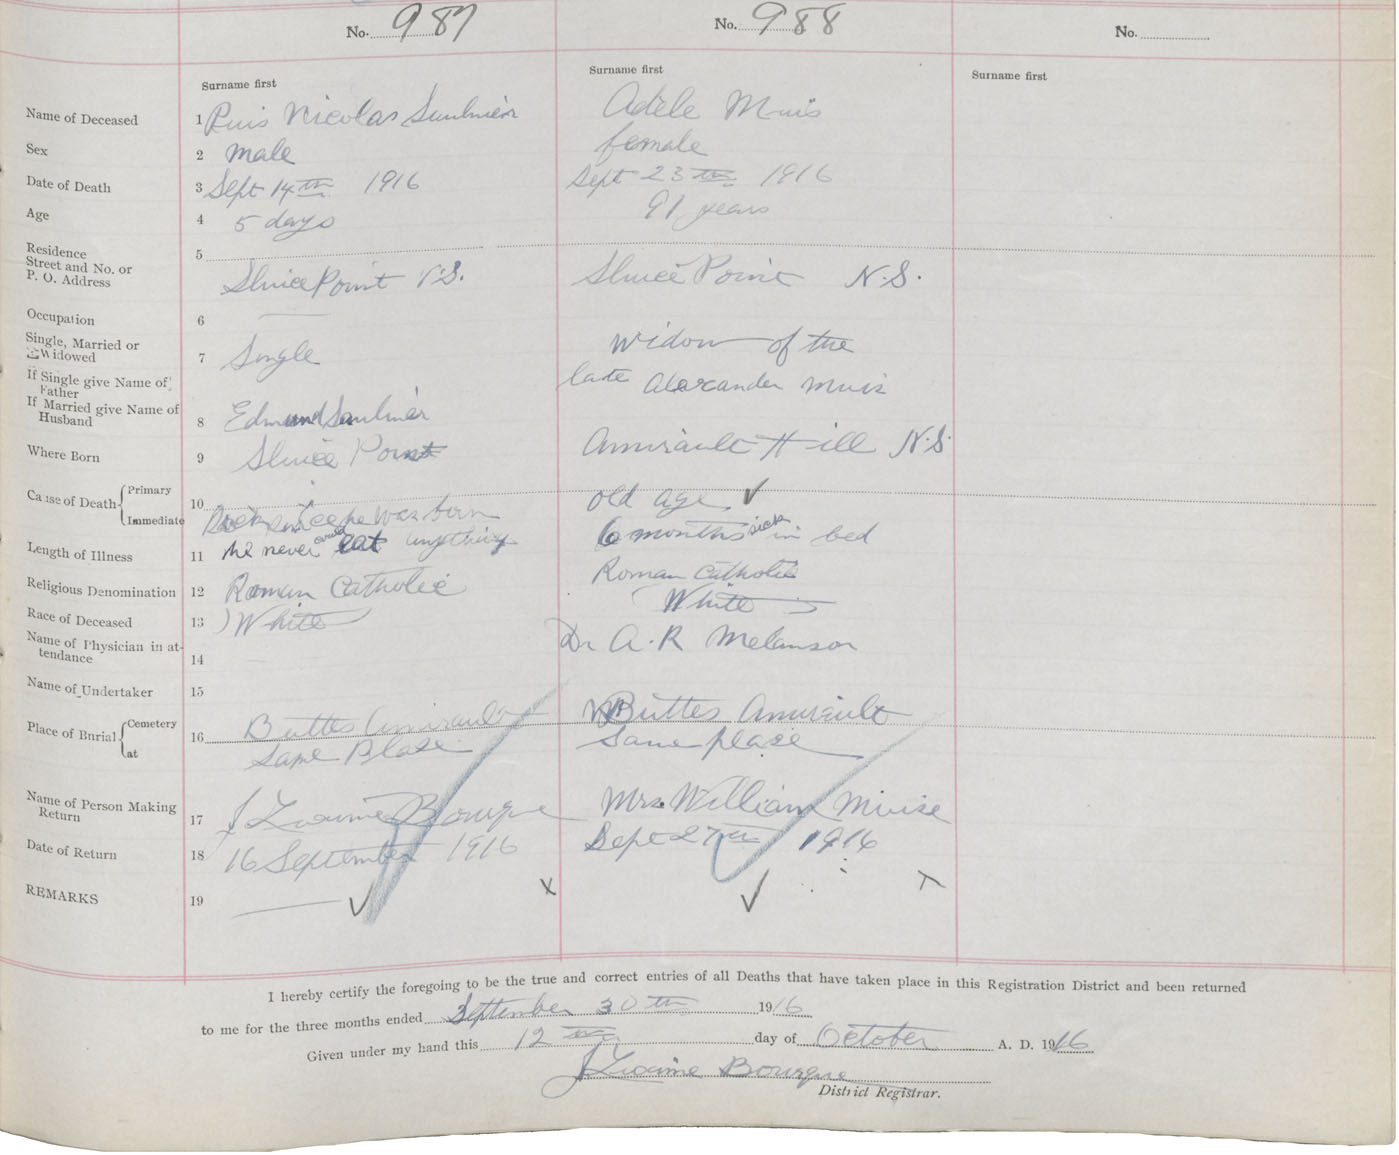 No. 987 No. 988 No.
Surname first Surname first Surname first
Name of Deceased 1 Nicolas Saulnier Adele Muis
Sex 2 male female
Date of Death 3 Sept 14th 1916 Sept 23th 1916
Age 4 5 days 91 years
Residence
Street and No. or 5
P. O. Address Sluice Point N.S. Sluice Point N.S.
Occupation 6
Single, Married or
Widowed 7 Single widow of the
If Single give Name of late Alexander Muis
Father
If Married give Name of
Husband 8 Edmund Saulnier
Where Born 9 Sluice Point Amirault Hill N.S
Cause of Death Primary 10 old age
Immediate since he was born 6 months sick in bed
Length of Illness 11 he never could eat anything
Religious Denomination 12 Roman Catholic Roman Catholic
Race of Deceased 13 White White
Name of Physician in at-
tendance 14 Dr A. R Melanson
Name of Undertaker 15
Place of Burial Cemetery 16 Buttes Amirault Buttes Amirault
at Same Place Same place
Name of Person Making
Return 17 Bourque Mrs. William Muise
Date of Return 18 16 September 1916 Sept 27th 1916
REMARKS 19
I hereby certify the foregoing to be the true and correct entries of all Deaths that have taken place in this Registration District and been returned
to me for the three months ended September 30th 1916
Given under my hand this 12th day of October A. D. 1916
Bourque
District Registrar.